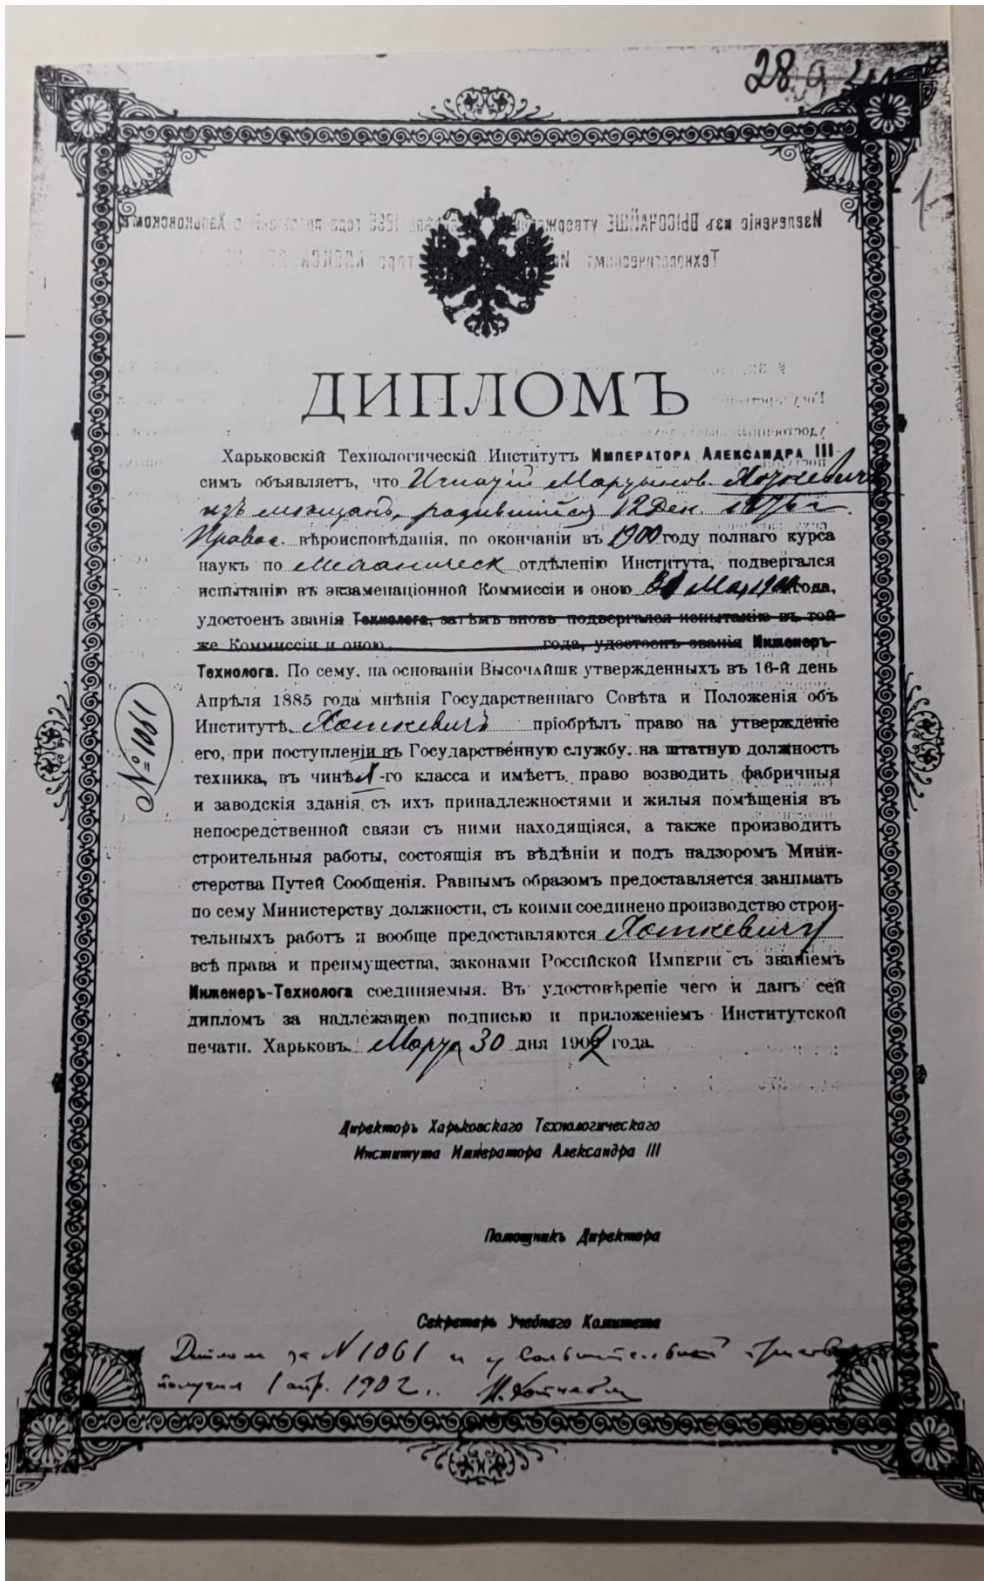 28
1
Извлеченіе изъ ВЫСОЧАЙШЕ утвержденнаго
Харьковскомъ
Технологическимъ
ДИПЛОМЪ
Харьковскій Технологическій Институтъ ИМПЕРАТОРА АЛЕКСАНДРА III
симъ объявляетъ, что Игнатій Мартынов. Хоткевичъ
изъ мѣщанъ, родившійся 12 Дек.
Правос. вѣроисповѣданія, по окончаніи въ 1900 году полнаго курса
наукъ по Механическ отдѣленію Института, подвергался
испытанію въ экзаменаціонной Коммиссіи и оною года,
удостоенъ званія Технолога, затѣмъ вновь подвергался испытанію въ той
же Коммиссіи и оною года, удостоенъ званія Инженеръ-
Технолога. По сему, на основаніи ВЫСОЧАЙШЕ утвержденныхъ въ 16-й день
Апрѣля 1885 года мнѣнія Государственнаго Совѣта и Положенія объ
Институтѣ, Хоткевичъ пріобрѣлъ право на утвержденіе
его, при поступленіи въ Государственную службу, на штатную должность
техника, въ чинѣ X-го класса и имѣетъ право возводить фабричныя
и заводскія зданія съ ихъ принадлежностями и жилыя помѣщенія въ
непосредственной связи съ ними находящіяся, а также производить
строительныя работы, состоящія въ вѣдѣніи и подъ надзоромъ Мини-
стерства Путей Сообщенія. Равнымъ образомъ предоставляется занимать
по сему Министерству должности, съ коими соединено производство строи-
тельныхъ работъ и вообще предоставляются Хоткевичу
всѣ права и преимущества, законами Россійской Имперіи съ званіемъ
Инженеръ-Технолога соединяемыя. Въ удостовѣреніе чего и данъ сей
дипломъ за надлежащею подписью и приложеніемъ Институтской
печати. Харьковъ. Марта 30 дня 1902 года.
№ 1061
Директоръ Харьковскаго Технологическаго
Института Императора Александра III
Помощникъ Директора
Секретарь Учебнаго Комитета
Диплом за N 1061 и
получил 1 апр. 1902 г.